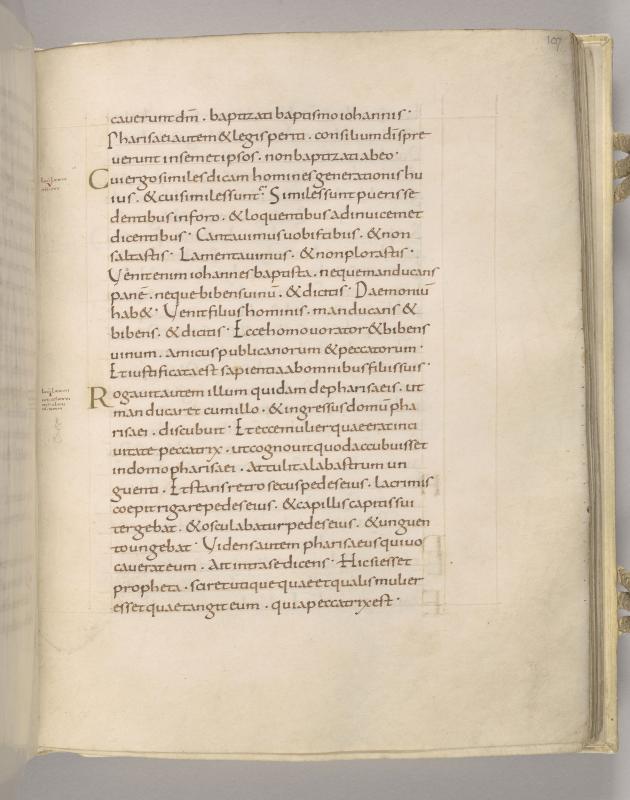 107
caverunt dm̄ . baptizati baptismo iohannis ·
Pharisaei autem & legisperiti . consilium di spre
verunt in semet ipsos . non baptizati ab eo ·
Cui ergo similes dicam homines generationis hu
ius . & cui similes sunt · Similes sunt pueris se
dentibus in foro . & loquentibus ad invicem et
dicentibus · Cantavimus vobis tibiis . & non
saltastis · Lamentavimus . & non plorastis ·
Venit enim iohannes baptista . neque manducans
panē . neque bibens vinū . & dicitis · Daemoniū
hab& · Venit filius hominis . manducans &
bibens . & dicitis · Ecce homo vorator & bibens
vinum . amicus publicanorum & peccatorum ·
Et iustificata est sapientia ab omnibus filiis suis ·
Rogavit autem illum quidam de pharisaeis . ut
manducaret cum illo . & ingressus domū pha
risaei . discubuit · Et ecce mulier quae erat in ci
vitate peccatrix . ut cognovit quod accubuisset
in domo pharisaei . Attulit alabastrum un
guenti . Et stans retro secus pedes eius . lacrimis
coepit rigare pedes eius . & capillis capitis sui
tergebat . & osculabatur pedes eius . & unguen
to ungebat · Videns autem pharisaeus qui vo
caverat eum . Ait intra se dicens · Hic si esset
propheta . sciret utique quae et qualis mulier
esset quae tangit eum . quia peccatrix est ·